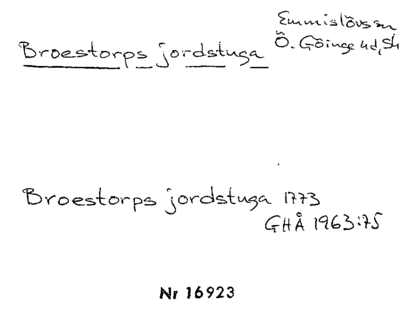 Emmislövs sn
Broestorps jordstuga Ö. Göinge hd, Sk
Broestorps jordstuga 1773
GHÅ 1963:75
Nr 16923